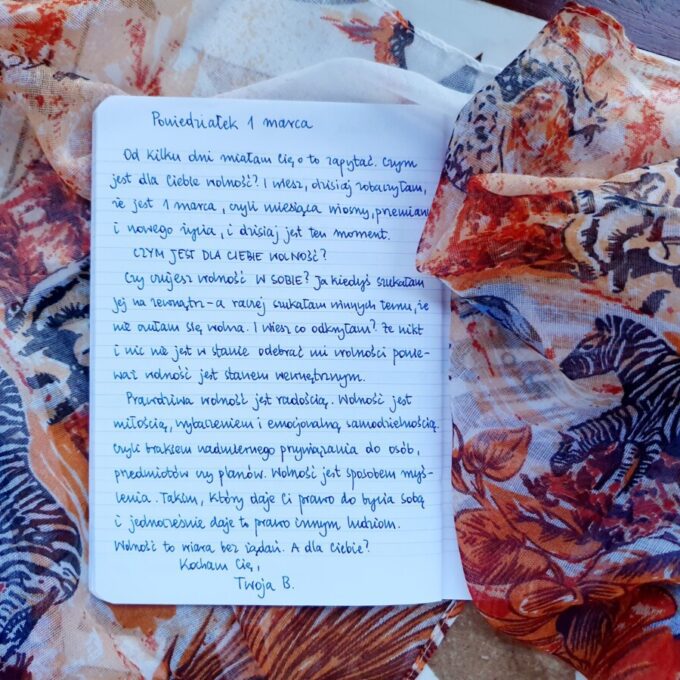 Poniedziałek 1 marca
Od kilku dni miałam Cię o to zapytać. Czym
jest dla Ciebie wolność? I wiesz, dzisiaj zobaczyłam,
że jest 1 marca, czyli miesiąca wiosny, przemiany
i nowego życia, i dzisiaj jest ten moment.
CZYM JEST DLA CIEBIE WOLNOŚĆ?
Czy czujesz wolność W SOBIE? Ja kiedyś szukałam
jej na zewnątrz - a raczej szukałam winnych temu, że
nie czułam się wolna. I wiesz co odkryłam? Że nikt
i nic nie jest w stanie odebrać mi wolności ponie-
waż wolność jest stanem wewnętrznym.
Prawdziwa wolność jest radością. Wolność jest
miłością, wybaczeniem i emocjonalną samodzielnością
czyli brakiem nadmiernego przywiązania do osób,
przedmiotów czy planów. Wolność jest sposobem myś-
lenia. Takim, który daje Ci prawo do bycia sobą
i jednocześnie daje to prawo innym ludziom.
Wolność to wiara bez żądań. A dla Ciebie?
Kocham Cię,
Twoja B.